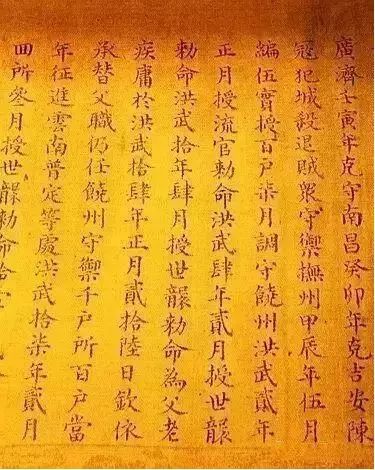 廣濟壬寅年克守南昌癸卯年克吉安陳
冦犯城殺退賊衆守禦撫州甲辰年伍月
編伍實授百戶柒月調守饒州洪武貳年
正月授流官勑命洪武肆年貳月授世襲
勑命洪武拾年肆月授世襲勑命為父老
疾庸於洪武拾肆年正月貳拾陸日欽依
承替父職仍任饒州守禦千戶所百戶當
年征進雲南普定等處洪武拾柒年貳月
回所叅月授世襲勑命